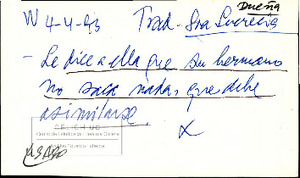 W 4-4-93 Trad. Sra Lucrecia Dueña
- Le dice a ella que su hermano
no saca nada, que debe
asimilarse
X